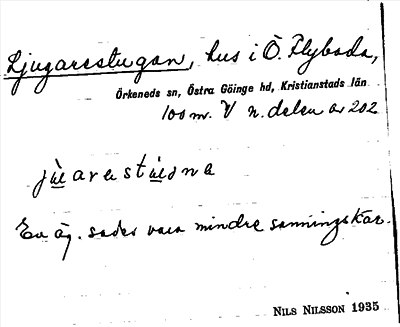 Ljugarestugan, hus i Ö. Flyboda,
Örkeneds sn, Östra Göinge hd, Kristianstads län
100 m. V n. delen av 202
En äg. sades vara mindre sanningskär.
NILS NILSSON 1935